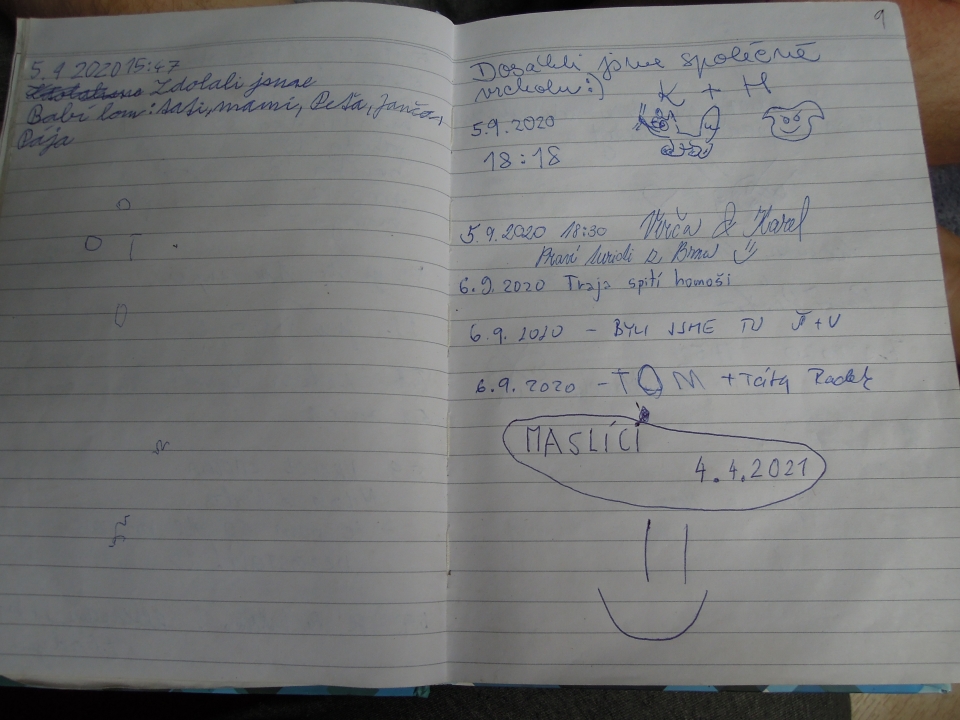 5.9.2020 15:47
Zdolali jsme
Babí lom: Saši, mami, Peťa, Janča,
Pája
9
Dosáhli jsme společně
vrcholu :)
K + H
5.9.2020
18:18
5.9.2020 18:30 Verča & Karel
Praví turisti z Brna
6.9.2020 Traja spití homoši
6.9.2020 - BYLI JSME TU Š+V
6.9.2020 - TOM + Táta Radek
MASLÍCI
4.4.2021